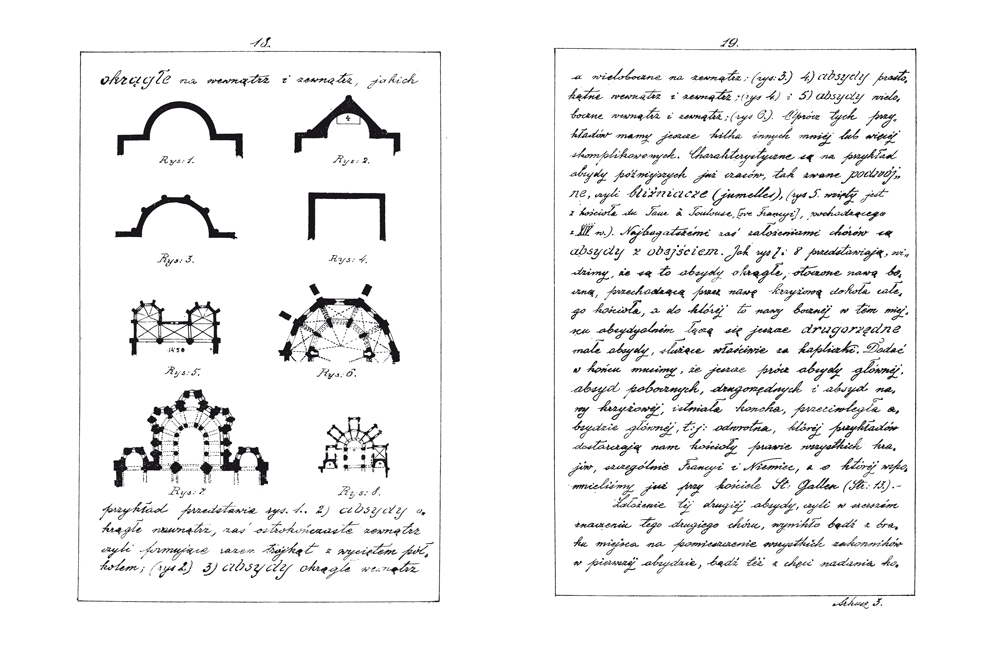 18.
okrągłe na wewnątrz i zewnątrz, jakich
Rys: 1.
4
Rys: 2.
Rys: 3.
Rys: 4.
Rys: 5.
Rys: 6.
Rys: 7.
Rys: 8.
przykład przedstawia rys. 1. 2) absydy o-
krągłe wewnątrz, zaś ostrokończaste zewnątrz
czyli formujące razem trójkąt z wyciętem pół-
kolem; (rys 2) 3) absydy okrągłe wewnątrz
19.
a wieloboczne na zewnątrz; (rys: 3.) 4) absydy prosto-
kątne wewnątrz i zewnątrz; (rys 4) i 5) absydy wielo-
boczne wewnątrz i zewnątrz; (rys 6.). Oprócz tych przy-
kładów mamy jeszcze kilka innych mniej lub więcej
skomplikowanych. Charakterystyczne są na przykład
absydy późniejszych już czasów, tak zwane podwój-
ne, czyli bliźniacze (jumelles), (rys 5. wzięty jest
z kościoła du Taur à Toulouse, [we Francyi], pochodzącego
z XIV w.). Najbogatszémi zaś założeniami chórów są
absydy z obejściem. Jak rys 7 i 8 przedstawiają, wi-
dzimy, że są to absydy okrągłe, otoczone nawą bo-
czną, przechodzącą przez nawę krzyżową dokoła całe-
go kościoła, a do której to nawy bocznéj w tém miej-
scu absydyalném łączą się jeszcze drugorzędne
małe absydy, służące właściwie za kapliczki. Dodać
w końcu musimy, że jeszcze prócz absydy głównéj,
absyd pobocznych, drugorzędnych i absyd na-
wy krzyżowéj, istniała koncha, przeciwległa a-
bsydzie głównéj, t:j: odwrotna, któréj przykładów
dostarczają nam kościoły prawie wszystkich kra-
jów, szczególnie Francyi i Niemiec, a o któréj wspo-
mnieliśmy już przy kościele St: Gallen (Str: 13).-
Założenie téj drugiéj absydy, czyli w szerszém
znaczeniu tego drugiego chóru, wynikło bądź z bra-
ku miejsca na pomieszczenie wszystkich zakonników
w pierwszéj absydzie, bądź też z chęci nadania ko-
Arkusz 3.